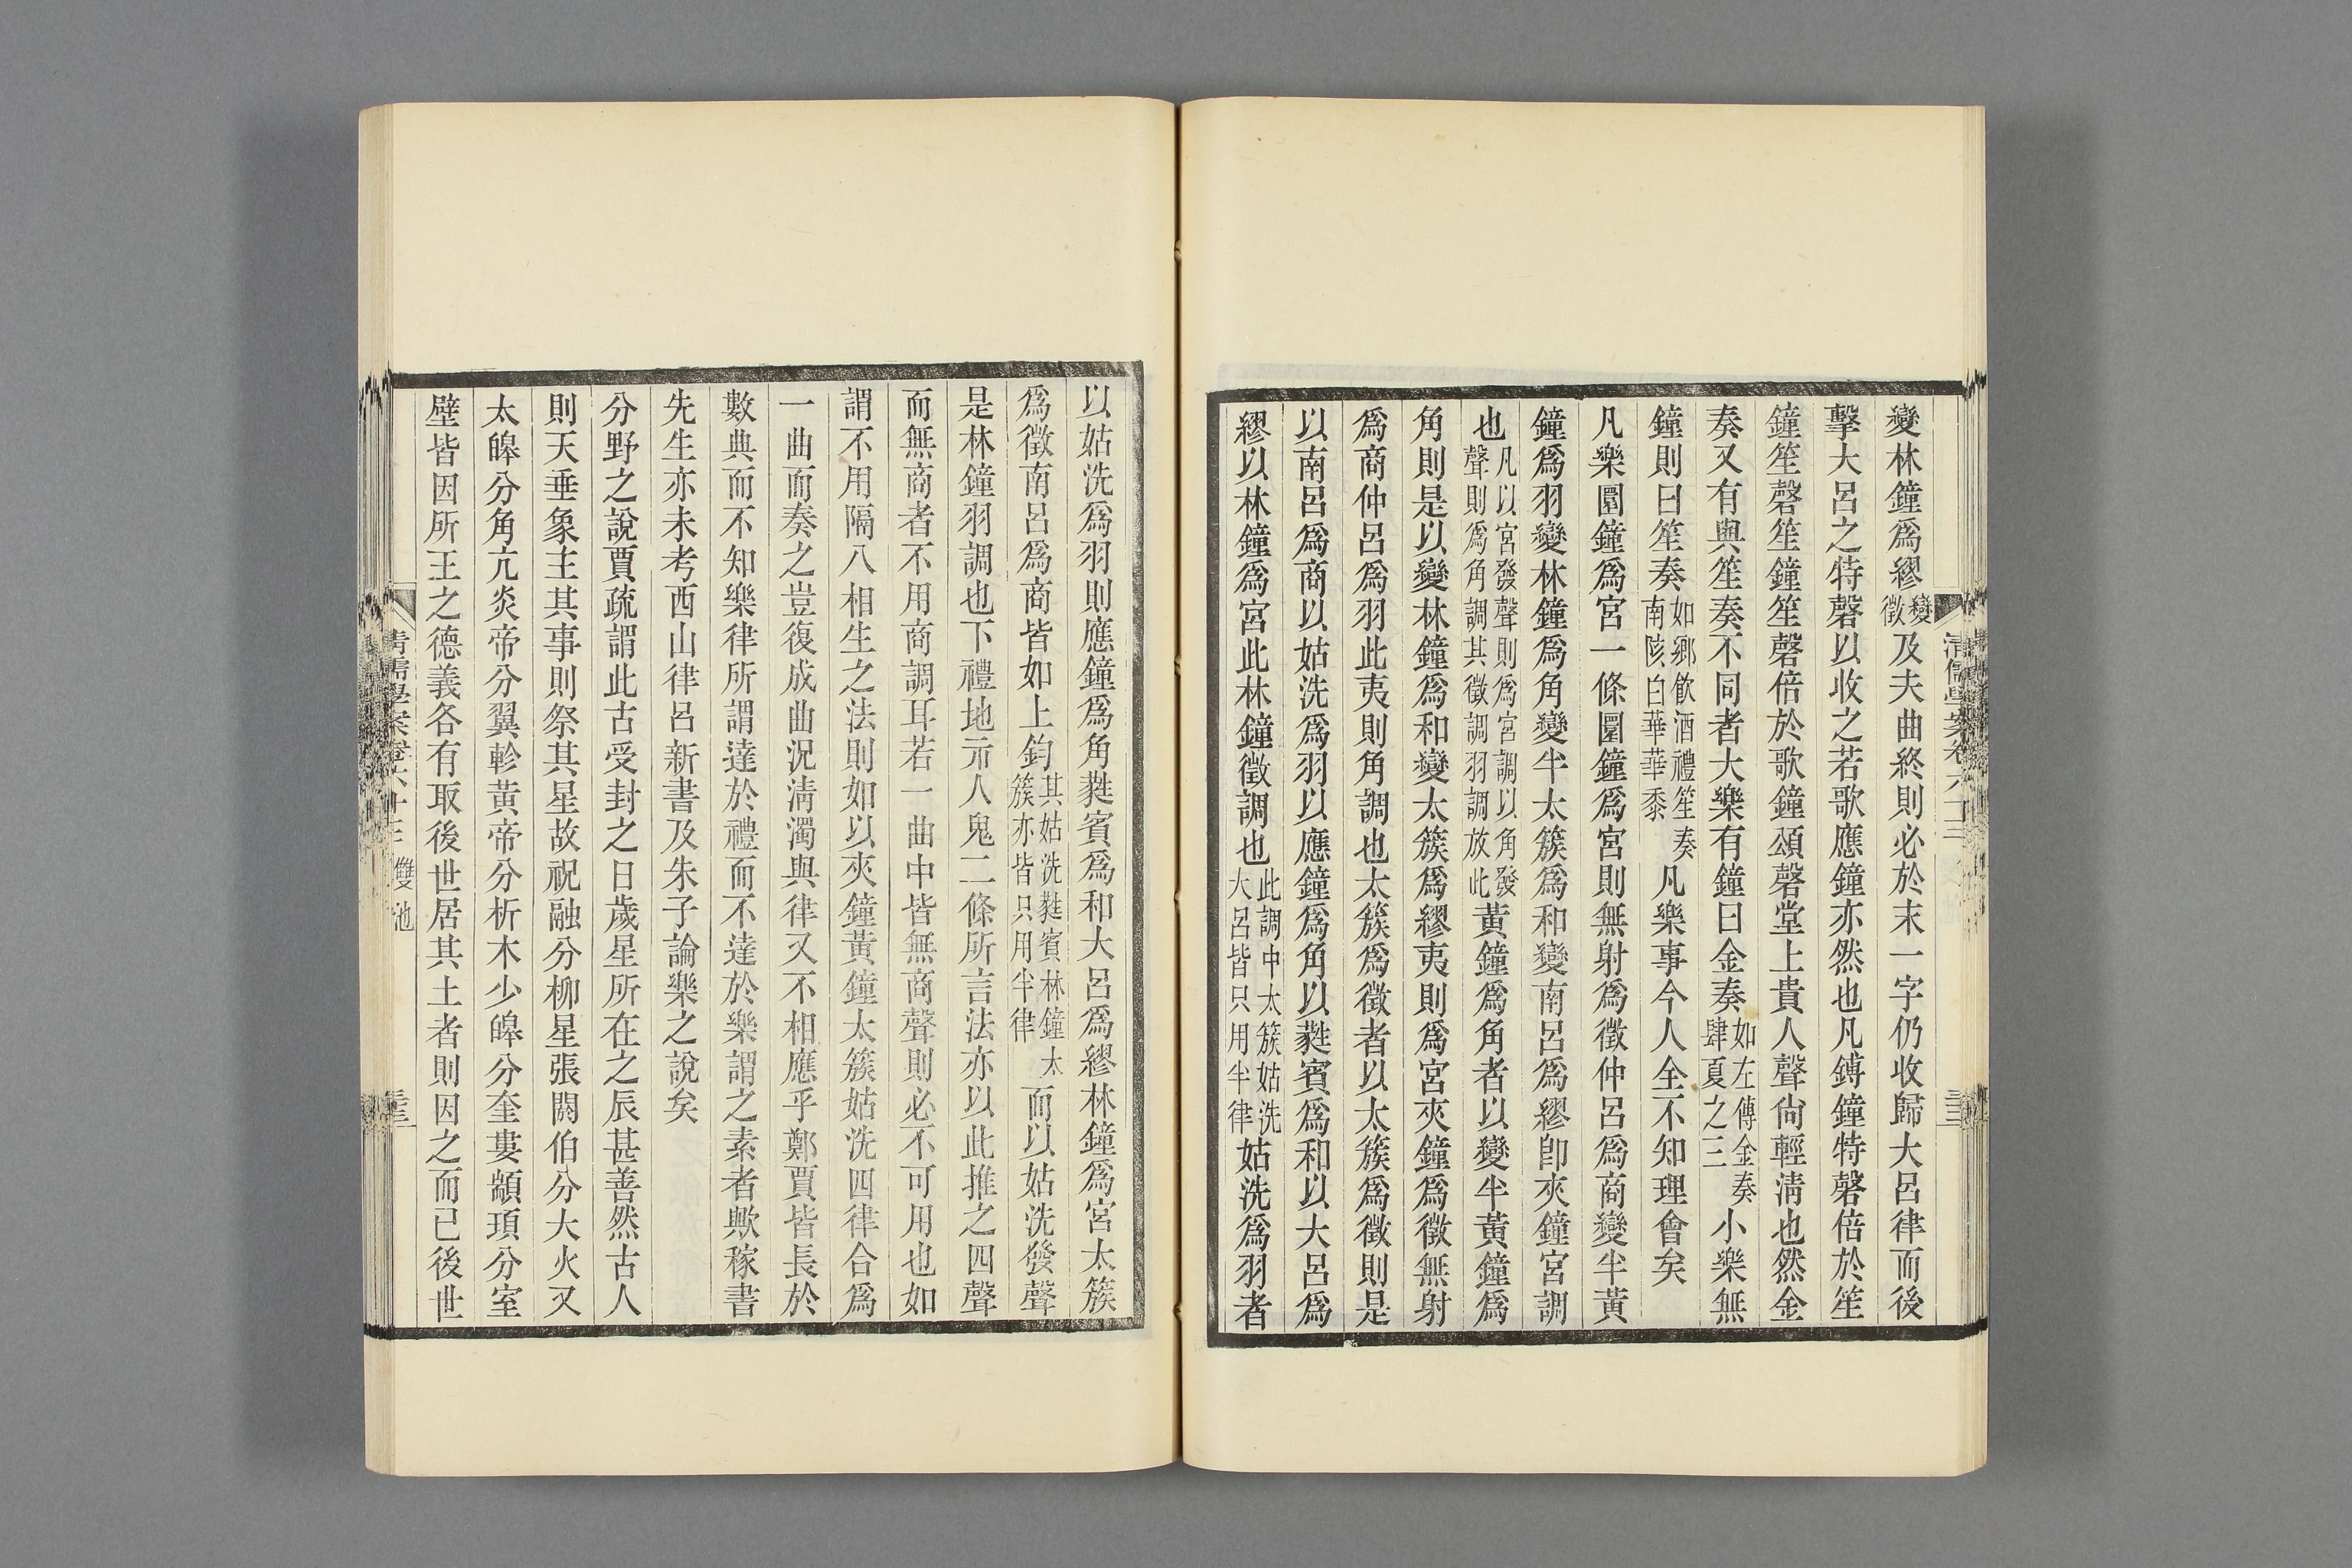 變林鐘爲繆變徵及夫曲終則必於末一字仍收歸大呂律而後
擊大呂之特磬以收之若歌應鐘亦然也凡鎛鐘特磬倍於笙
鐘笙磬笙鐘笙磬倍於歌鐘頌磬堂上貴人聲尙輕淸也然金
奏又有與笙奏不同者大樂有鐘曰金奏如左傳金奏肆夏之三小樂無
鐘則曰笙奏如鄉飮酒禮笙奏南陔白華華黍凡樂事今人全不知理會矣
凡樂圜鐘爲宮一條圜鐘爲宮則無射爲徵仲呂爲商變半黃
鐘爲羽變林鐘爲角變半太簇爲和變南呂爲繆卽夾鐘宮調
也凡以宮發聲則爲宮調以角發聲則爲角調其徵調羽調放此黃鐘爲角者以變半黃鐘爲
角則是以變林鐘爲和變太簇爲繆夷則爲宮夾鐘爲徵無射
爲商仲呂爲羽此夷則角調也太簇爲徵者以太簇爲徵則是
以南呂爲商以姑洗爲羽以應鐘爲角以蕤賓爲和以大呂爲
繆以林鐘爲宮此林鐘徵調也此調中太簇姑洗大呂皆只用半律姑洗爲羽者
淸儒學案卷六十三
三三
以姑洗爲羽則應鐘爲角蕤賓爲和大呂爲繆林鐘爲宮太簇
爲徵南呂爲商皆如上鈞其姑洗蕤賓林鐘太簇亦皆只用半律而以姑洗發聲
是林鐘羽調也下禮地示人鬼二條所言法亦以此推之四聲
而無商者不用商調耳若一曲中皆無商聲則必不可用也如
謂不用隔八相生之法則如以夾鐘黃鐘太簇姑洗四律合爲
一曲而奏之豈復成曲況淸濁與律又不相應乎鄭賈皆長於
數典而不知樂律所謂達於禮而不達於樂謂之素者歟稼書
先生亦未考西山律呂新書及朱子論樂之說矣
分野之說賈疏謂此古受封之日歲星所在之辰甚善然古人
則天垂象主其事則祭其星故祝融分柳星張閼伯分大火又
太皞分角亢炎帝分翼軫黃帝分析木少皞分奎婁顓頊分室
壁皆因所王之德義各有取後世居其土者則因之而已後世
淸儒學案卷六十三 雙池
三三